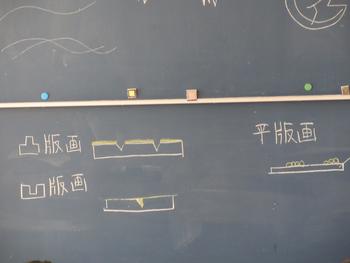 凸版画
平版画
凹版画